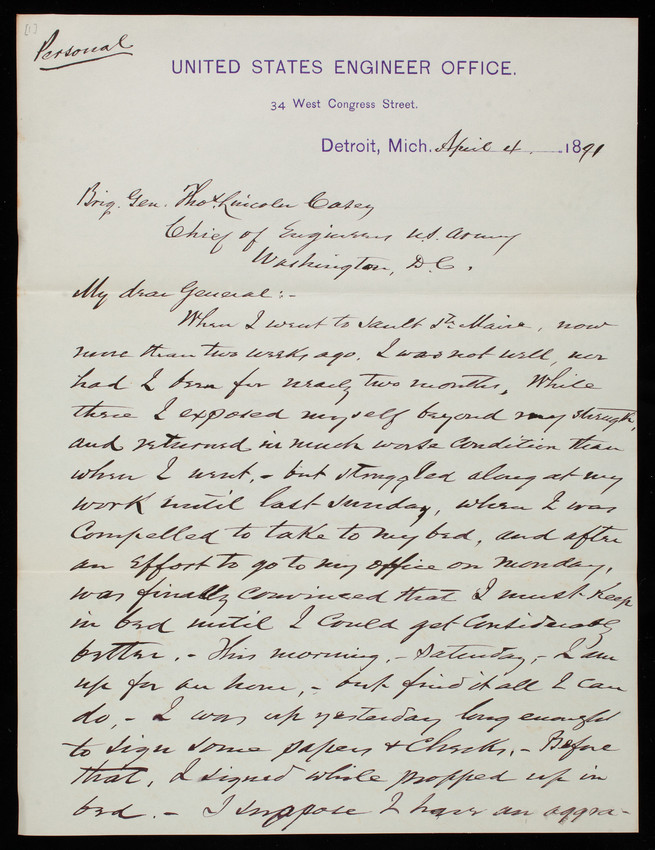 [1]
Personal
UNITED STATES ENGINEER OFFICE.
34 West Congress Street.
Detroit, Mich. April 4, 1891
Brig. Gen. Thos Lincoln Casey
Chief of Engineers U.S. Army
Washington, D.C.
My dear General:-
When I went to Sault Ste Maire, now
more than two weeks ago, I was not well, nor
had I been for nearly two months. While
there I exposed myself beyond my strength,
and returned in much worse condition than
when I went, - but struggled along at my
work until last Sunday, when I was
compelled to take to my bed, and after
an effort to go to my office on Monday,
was finally convinced that I must keep
in bed until I could get considerably
better. - This morning, - Saturday, - I am
up for an hour, - but find it all I can
do, - I was up yesterday long enough
to sign some papers & checks, - Before
that, I signed while propped up in
bed. - I suppose I have an aggra-